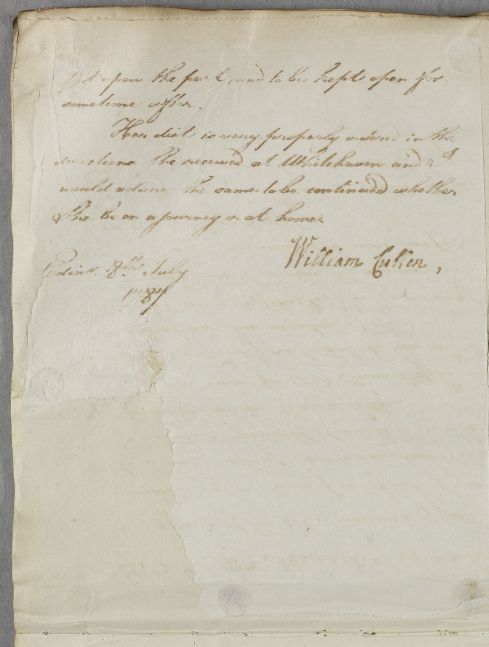 and upon the part, and to be kept open for
sometime after.
Her diet is very properly advised in the
directions She received at Whitehaven and I
would advise the same to be continued whether
She be on a journey or at home.
William Cullen,
Edinr. 8th. July
1784